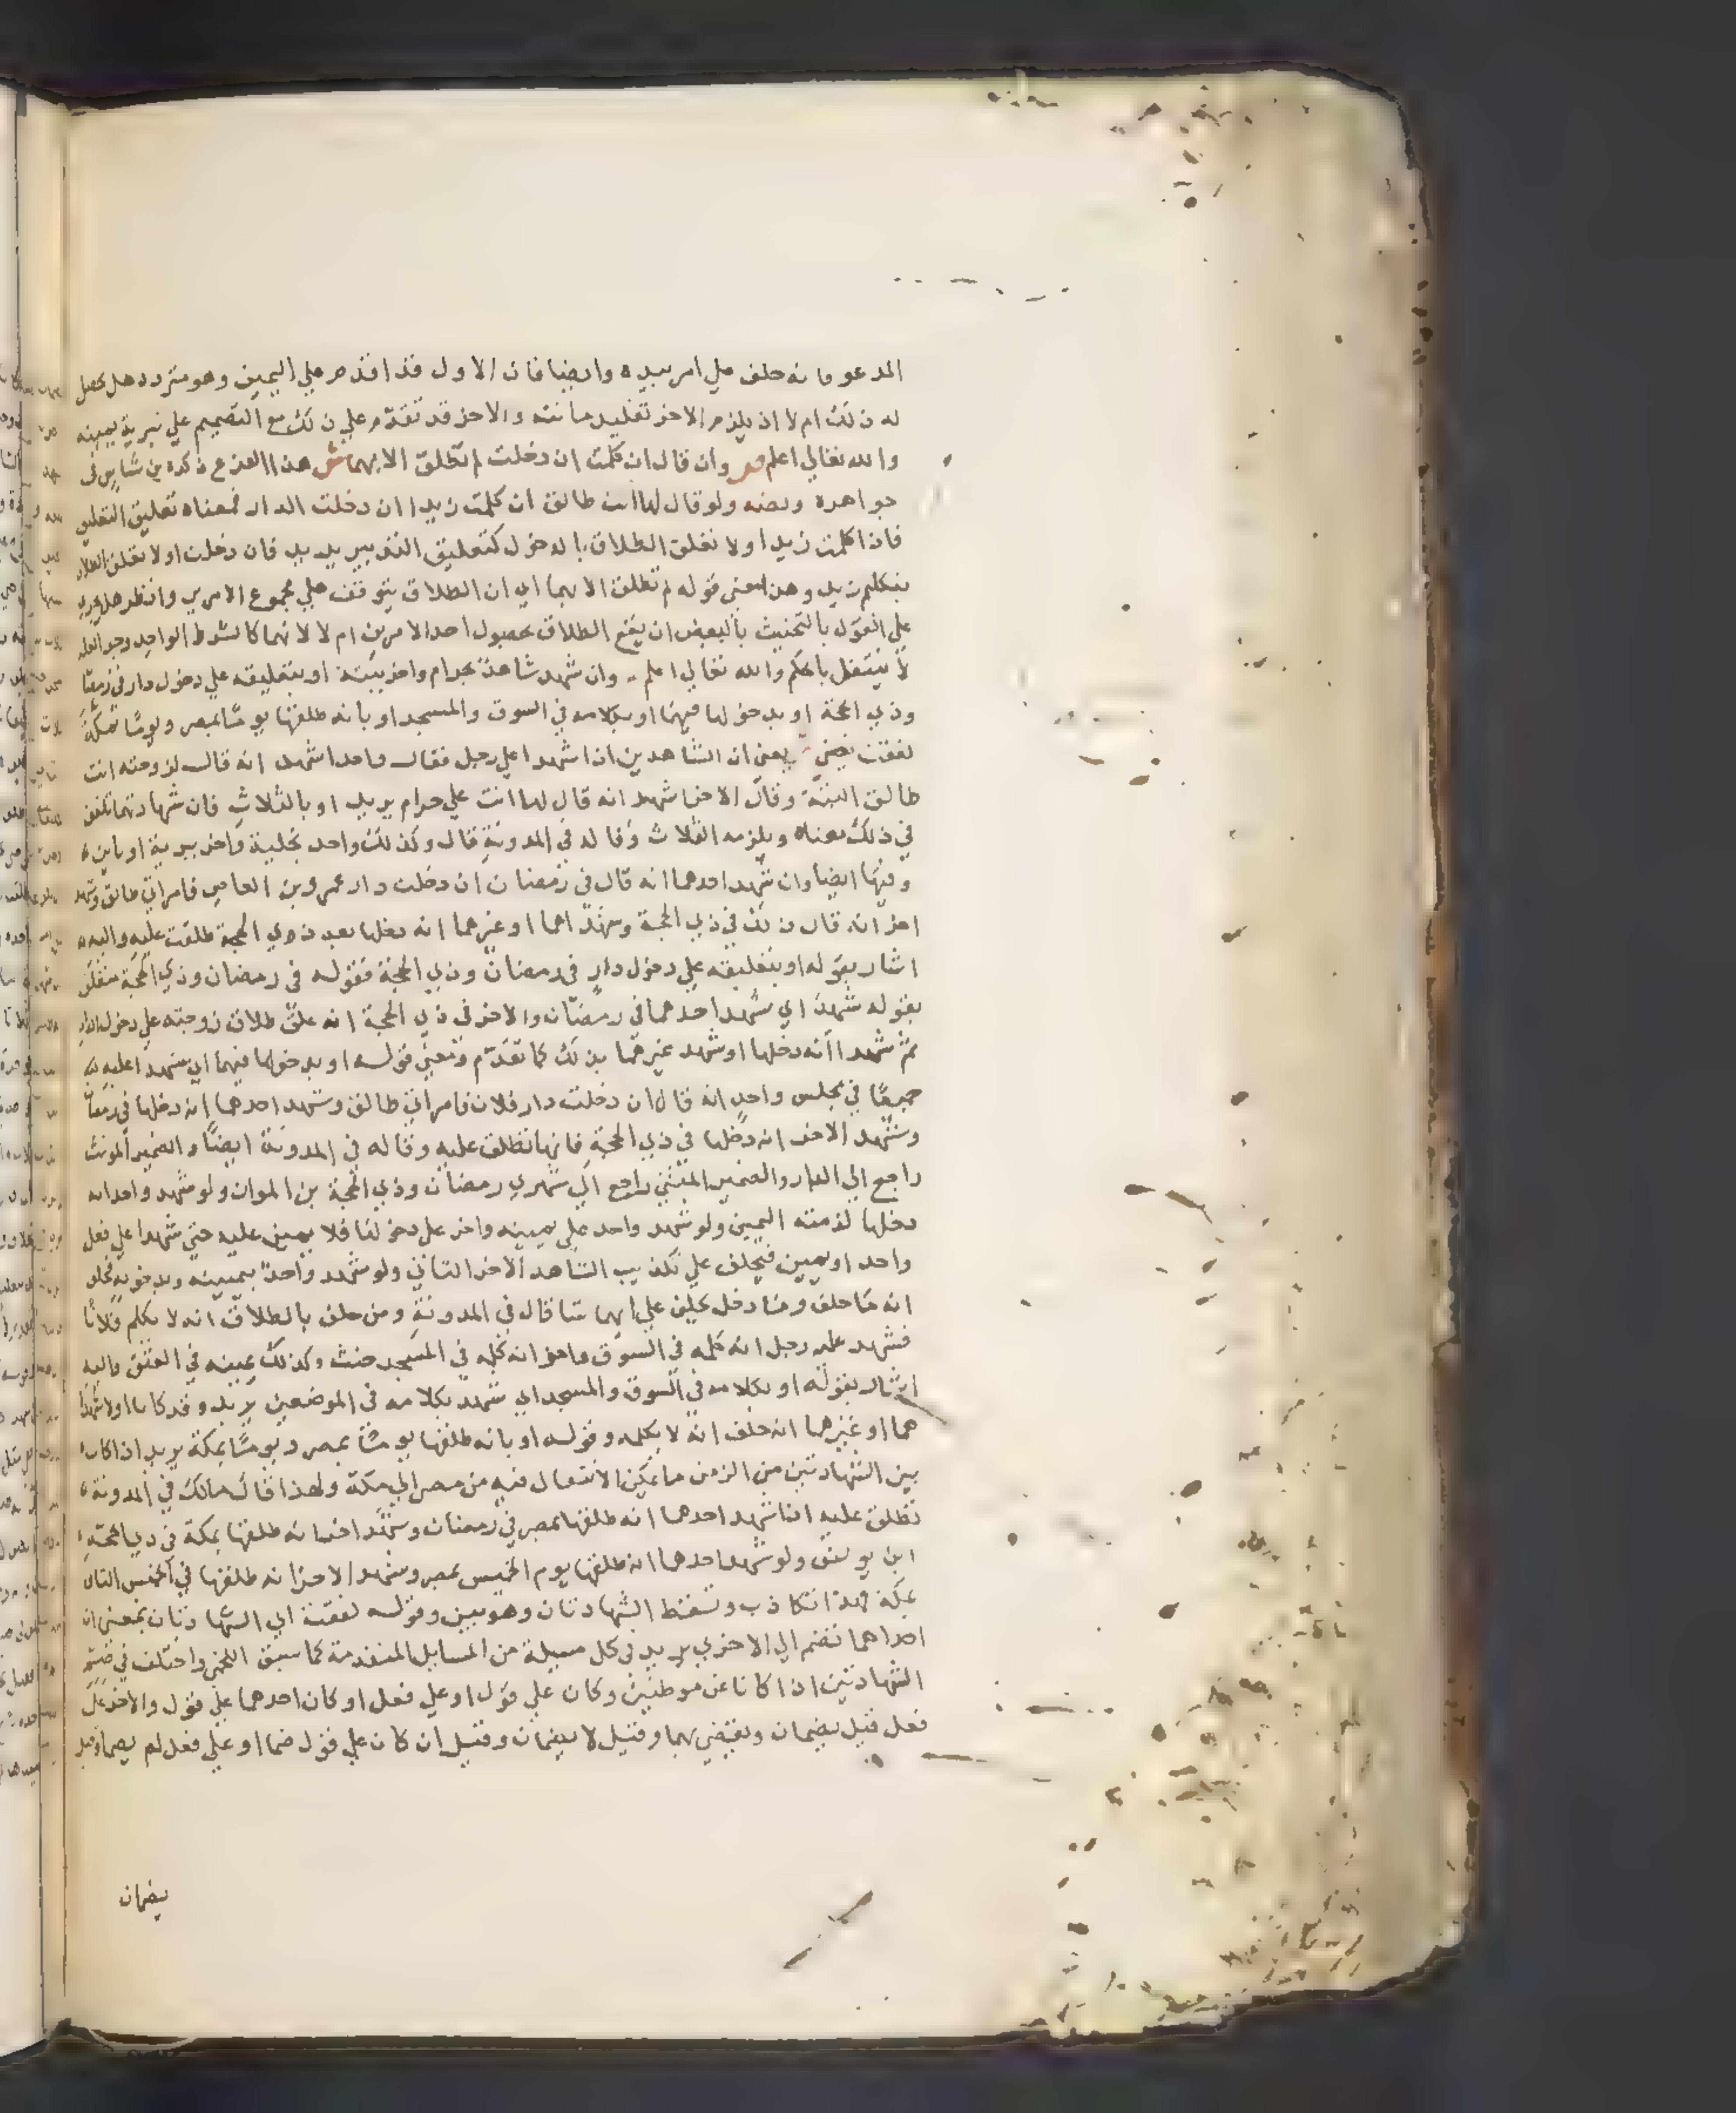 المدعو فانه حلف علي امر بيده وايضا فان الاول قد اقدم علي اليمين وهو متردد هل يحصل
له ذلك ام لا اذ يلزم الاخر تقليد مانته والاخر قد تقدم علي ذلك مع التصميم علي تبرية يمينه
والله تعالي اعلم ص وان قال ان كلمت ان دخلت لم تطلق الا بهما ش هذا الفرع ذكره بن شاس في
جواهره ونصه ولو قال لها انت طالق ان كلمت زيدا ان دخلت الدار فمعناه تعليق التعليق
فاذا كلمت زيدا اولا تعلق الطلاق بالدخول كتعليق التدبير يريد فان دخلت اولا تعلق الطلاق
بتكليم زيد وهذا معني قوله لم تطلق الا بهما اي ان الطلاق يتوقف علي مجموع الامرين وانظر هل يجري
علي القول بالتحنيث بالبعض ان يقع الطلاق بحصول احد الامرين ام لا لانهما كالشرط الواحد وجزء العلة
لا يستقل بالحكم والله تعالي اعلم وان شهد شاهد بحرام واخر ببتة او بتعليقه علي دخول دار في رمضان
وذي الحجة او بدخولها فيهما او بكلامه في السوق والمسجد او بانه طلقها يوما بمصر ويوما بمكة
لفقت يعني ان الشاهدين اذا شهدا علي رجل فقال واحد اشهد انه قال لزوجته انت
طالق البتة وقال الاخر اشهد انه قال لها انت علي حرام يريد او بالثلاث فان شهادتهما تلفق
في ذلك معناه ويلزمه الثلاث وقاله في المدونة قال وكذلك واحد بخلية واخر ببرية او باين
وفيها ايضا وان شهد احدهما انه قال في رمضان ان دخلت دار عمرو بن العاص فامراتي طالق وشهد
اخر انه قال ذلك في ذي الحجة وشهدا هما او غيرهما انه دخلها بعد ذي الحجة طلقت عليه واليه
اشار بقوله او بتعليقه علي دخول دار في رمضان وذي الحجة فقوله في رمضان وذي الحجة متعلق
بقوله شهد اي شهد احدهما في رمضان والاخر في ذي الحجة انه علق طلاق زوجته علي دخول الدار
ثم شهدا انه دخلها او شهد غيرهما بذلك كما تقدم ومعني قوله او بدخولها فيهما اي شهدا عليه به
جميعا في مجلس واحد انه قال ان دخلت دار فلان فامراتي طالق وشهد احدهما انه دخلها في رمضان
وشهد الاخر انه دخلها في ذي الحجة فانها تطلق عليه وقاله في المدونة ايضا والضمير المونث
راجع الي الدار والضمير المثني راجع الي شهري رمضان وذي الحجة بن المواز ولو شهد واحد انه
دخلها لزمته اليمين ولو شهد واحد علي يمينه واخر علي دخولها فلا يمين عليه حتي شهدا علي فعل
واحد او يمين فيحلف علي تكذيب الشاهد الاخر الثاني ولو شهد واحد بيمينه وبدخوله فيحلف
انه ما حلف وما دخل يحلف علي ايهما شا قال في المدونة ومن حلف بالطلاق انه لا يكلم فلانا
فشهد عليه رجل انه كلمه في السوق واخر انه كلمه في المسجد حنث وكذلك يمينه في العتق واليه
اشار بقوله او بكلامه في السوق والمسجد اي شهد بكلامه في الموضعين يريد وقد كانا اولا شهدا
هما او غيرهما انه حلف انه لا يكلمه وقوله او بانه طلقها يوما بمصر ويوما بمكة يريد اذا كان
بين الشهادتين من الزمن ما يمكن الانتقال فيه من مصر الي مكة ولهذا قال مالك في المدونة
تطلق عليه اذا شهد احدهما انه طلقها بمصر في رمضان وشهد اخر انه طلقها بمكة في ذي الحجة
ابن يونس ولو شهد احدهما انه طلقها يوم الخميس بمصر وشهد الاخر انه طلقها في الخميس الثاني
بمكة فهذا تكاذب وتسقط الشهادتان وهو بين وقوله لفقت اي الشهادتان بمعني ان
احداهما تضم الي الاخري يريد في كل مسيلة من المسايل المتقدمة كما سبق اللخمي واختلف في ضم
الشهادتين اذا كانا عن موطنين وكان علي قول او علي فعل او كان احدهما علي قول والاخر علي
فعل فقيل يضمان ويقضي بهما وقيل لا يضمان وقيل ان كان علي قول ضما او علي فعل لم يضما وقيل
يضمان